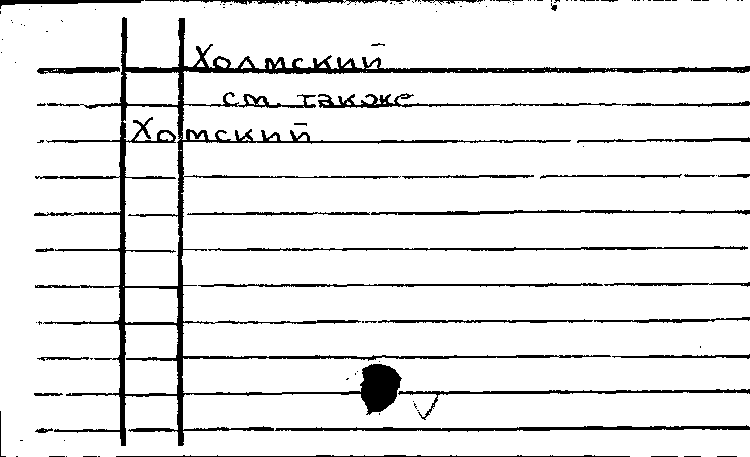 Холмский
см. также
Хомский